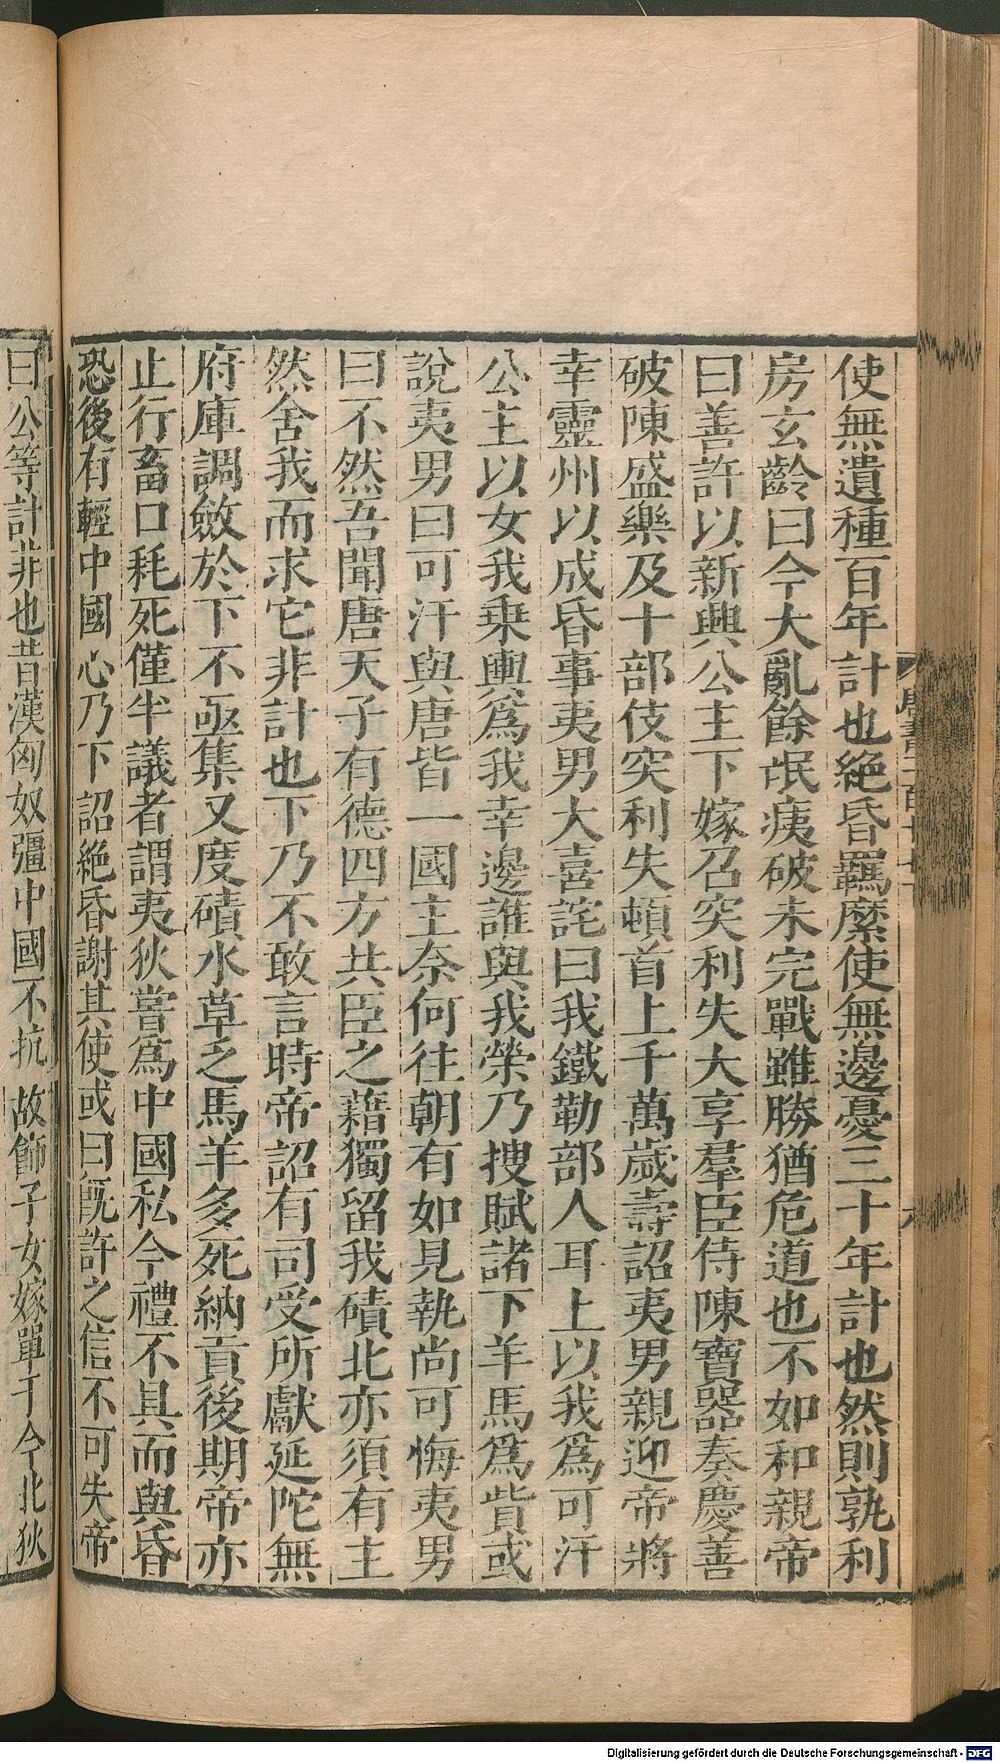 使無遺種百年計也絕昏羈縻使無邊憂三十年計也然則孰利
房玄齡曰今大亂餘氓痍破未完戰雖勝猶危道也不如和親帝
曰善許以新興公主下嫁召突利失大享羣臣侍陳寶器奏慶善
破陳盛樂及十部伎突利失頓首上千萬歲壽詔夷男親迎帝將
幸靈州以成昏事夷男大喜詫曰我鐵勒部人耳上以我爲可汗
公主以女我乗輿爲我幸邊誰與我榮乃搜賦諸下羊馬爲貲或
說夷男曰可汗與唐皆一國主奈何往朝有如見執尚可悔夷男
曰不然吾聞唐天子有德四方共臣之藉獨留我磧北亦須有主
然舍我而求它非計也下乃不敢言時帝詔有司受所獻延陀無
府庫調斂於下不亟集又度磧水草乏馬羊多死納貢後期帝亦
止行畜口耗死僅半議者謂夷狄嘗爲中國私今禮不具而與昏
恐後有輕中國心乃下詔絕昏謝其使或曰旣許之信不可失帝
曰公等計非也昔漢匈奴彊中國不抗故飾子女嫁單于今北狄
Digitalisierung gefördert durch die Deutsche Forschungsgemeinschaft - DFG